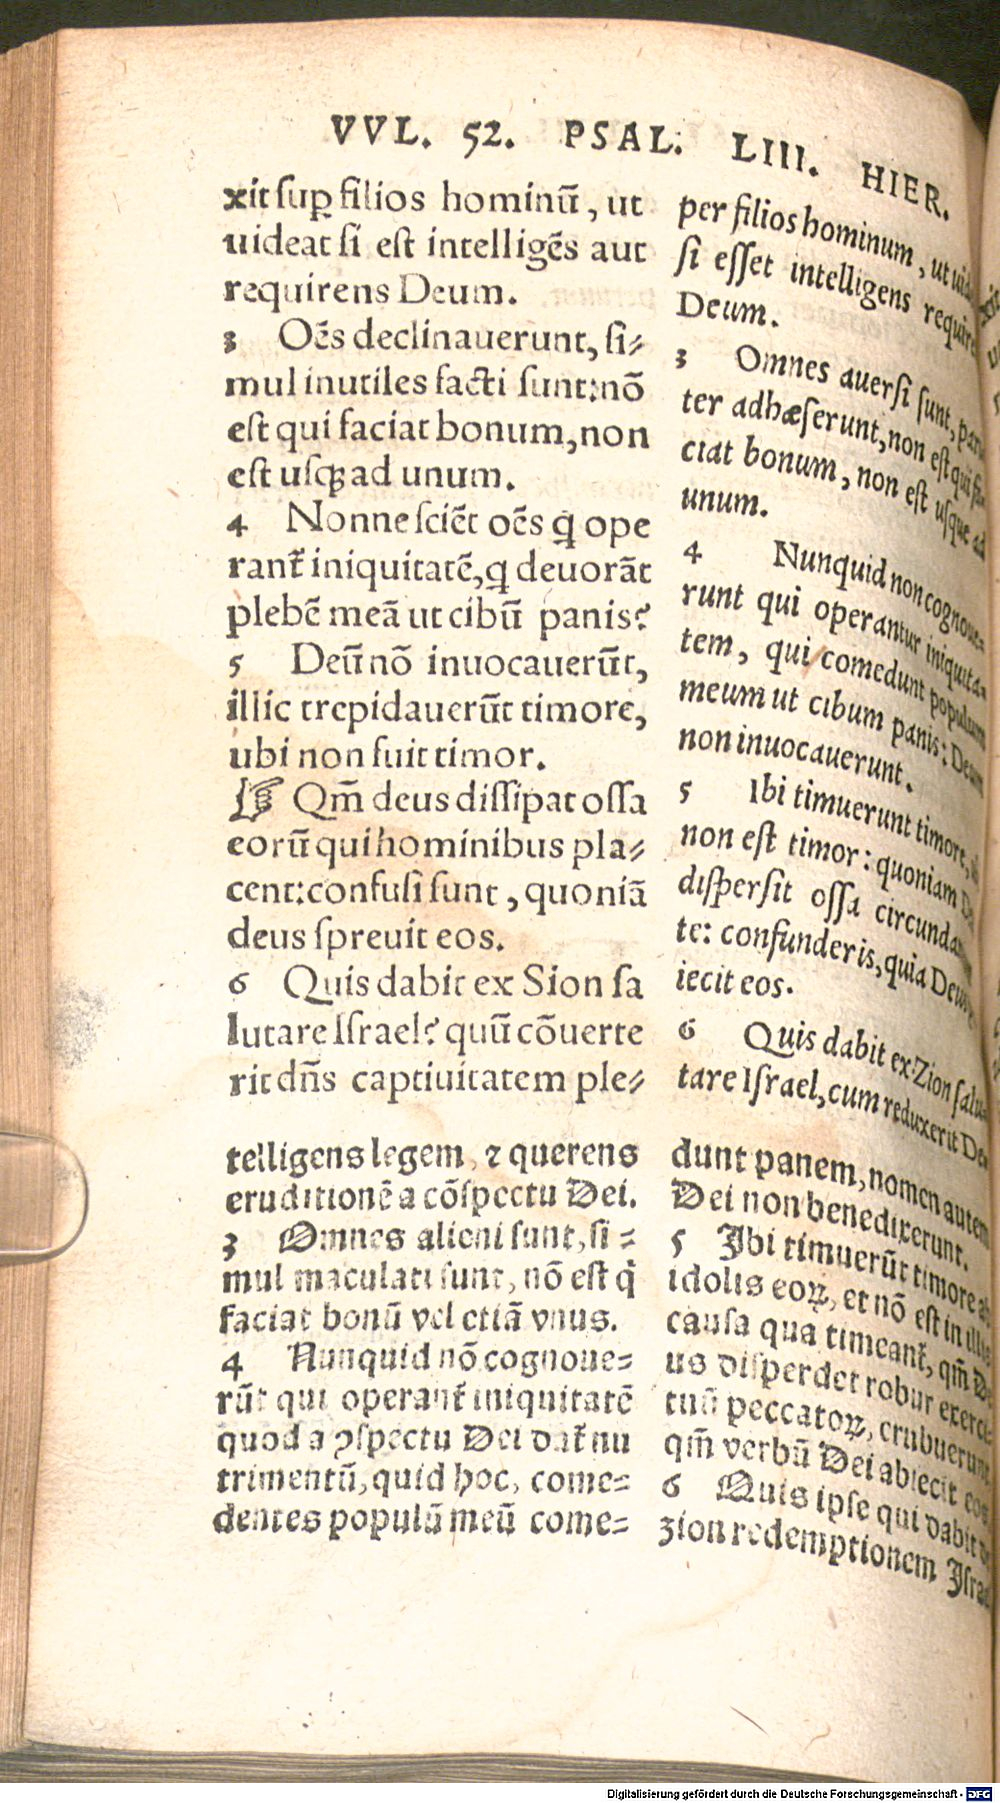 VVL. 52. PSAL. LIII. HIER.
xit sup filios hominū, ut
uideat si est intelligēs aut
requirens Deum.
3 Oēs declinauerunt, si⸗
mul inutiles facti sunt: nō
est qui faciat bonum, non
est usqꝫ ad unum.
4 Nonne sciēt oēs q̄ ope
rant᷑ iniquitatē, q̄ deuorāt
plebē meā ut cibū panis?
5 Deū nō inuocauerūt,
illic trepidauerūt timore,
ubi non fuit timor.
☞ Qm̄ deus dissipat ossa
eorū qui hominibus pla⸗
cent: confusi sunt, quoniā
deus spreuit eos.
6 Quis dabit ex Sion sa
lutare Israel? quū cōuerte
rit dn̄s captiuitatem ple⸗
per filios hominum, ut
si esset intelligens
Deum.
3 Omnes auersi sunt,
ter adhæserunt, non est qui
ciat bonum, non est usque ad
unum.
4 Nunquid non cognoue⸗
runt qui operantur iniquita⸗
tem, qui comedunt populum
meum ut cibum panis: Deum
non inuocauerunt.
5 Ibi timuerunt timore,
non est timor: quoniam
dispersit ossa
te: confunderis, quia Deus
iecit eos.
6 Quis dabit ex Zion
tare Israel, cum reduxerit
telligens legem, ⁊ querens
eruditionē a cōspectu Dei.
3 Omnes alieni sunt, si⸗
mul maculati sunt, nō est q̇
faciat bonū vel etiā vnus.
4 Nunquid nō cognoue⸗
rūt qui operant᷑ iniquitatē
quod a ꝯspectu Dei dat᷑ nu
trimentū, quid hoc, come⸗
dentes populū meū come⸗
dunt panem, nomen autem
Dei non benedixerunt.
5 Ibi timuerūt timore ab
idolis eoꝝ, et nō est in illis
causa qua timeant᷑, qm̄
us disperdet robur
tuū peccatoꝝ, erubuerunt
qm̄ verbū Dei abiecit eos
6 Quis ipse qui dabit
zion redemptionem
Digitalisierung gefördert durch die Deutsche Forschungsgemeinschaft - DFG